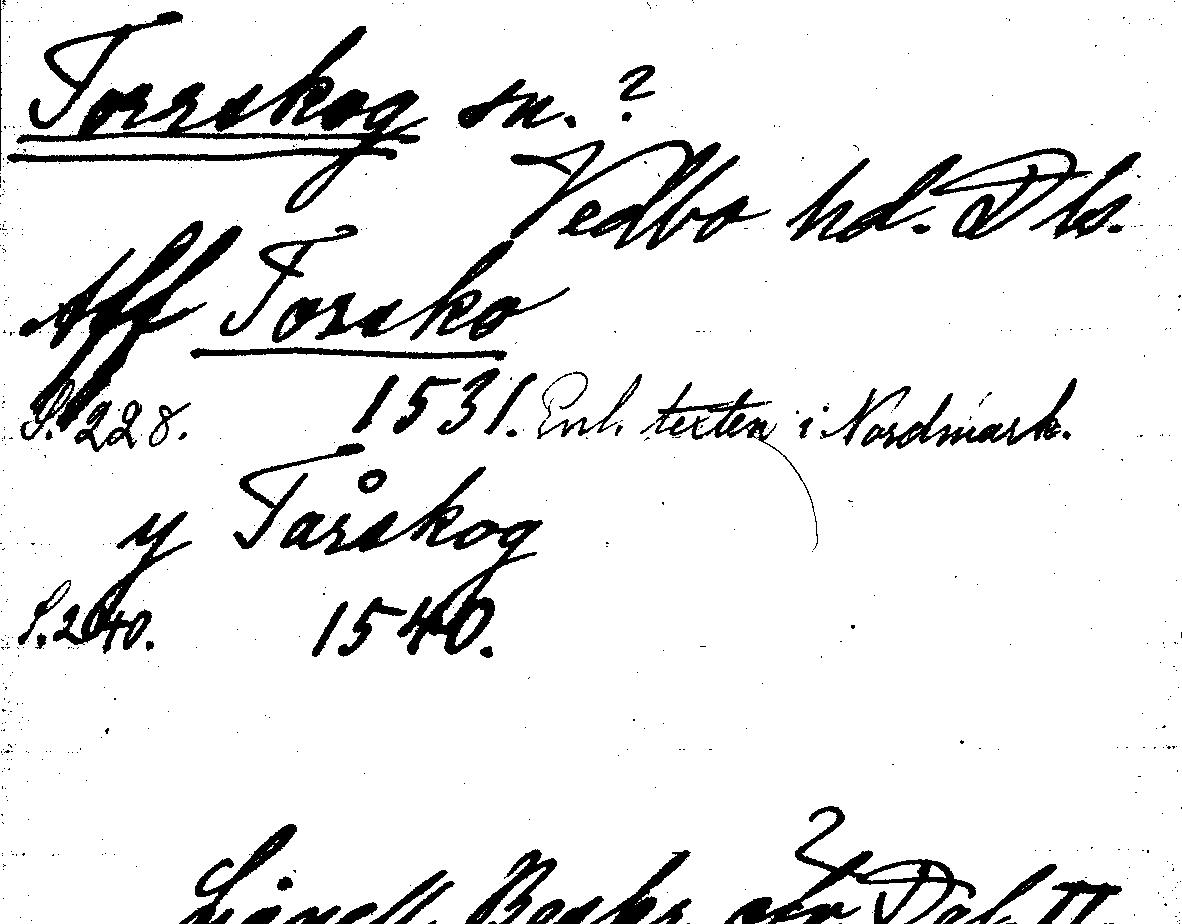 Torrskog sn. ?
Vedbo hd. Dls.
Aff Torsko
S. 228. 1531. Enl. texten i Nordmark.
y Tårskog
S. 240. 1540.
Lignell Beskr. öfv. Dal II